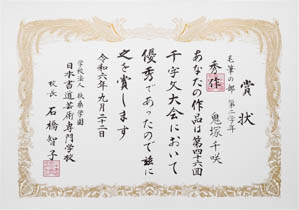 賞状
毛筆の部 第二学年
秀作 鬼塚千咲
あなたの作品は第四十六回
千字文大会において
優秀であったので茲に
之を賞します
令和六年九月二十二日
学校法人 扶桑学園
日本書道芸術専門学校
校長 石橋智子